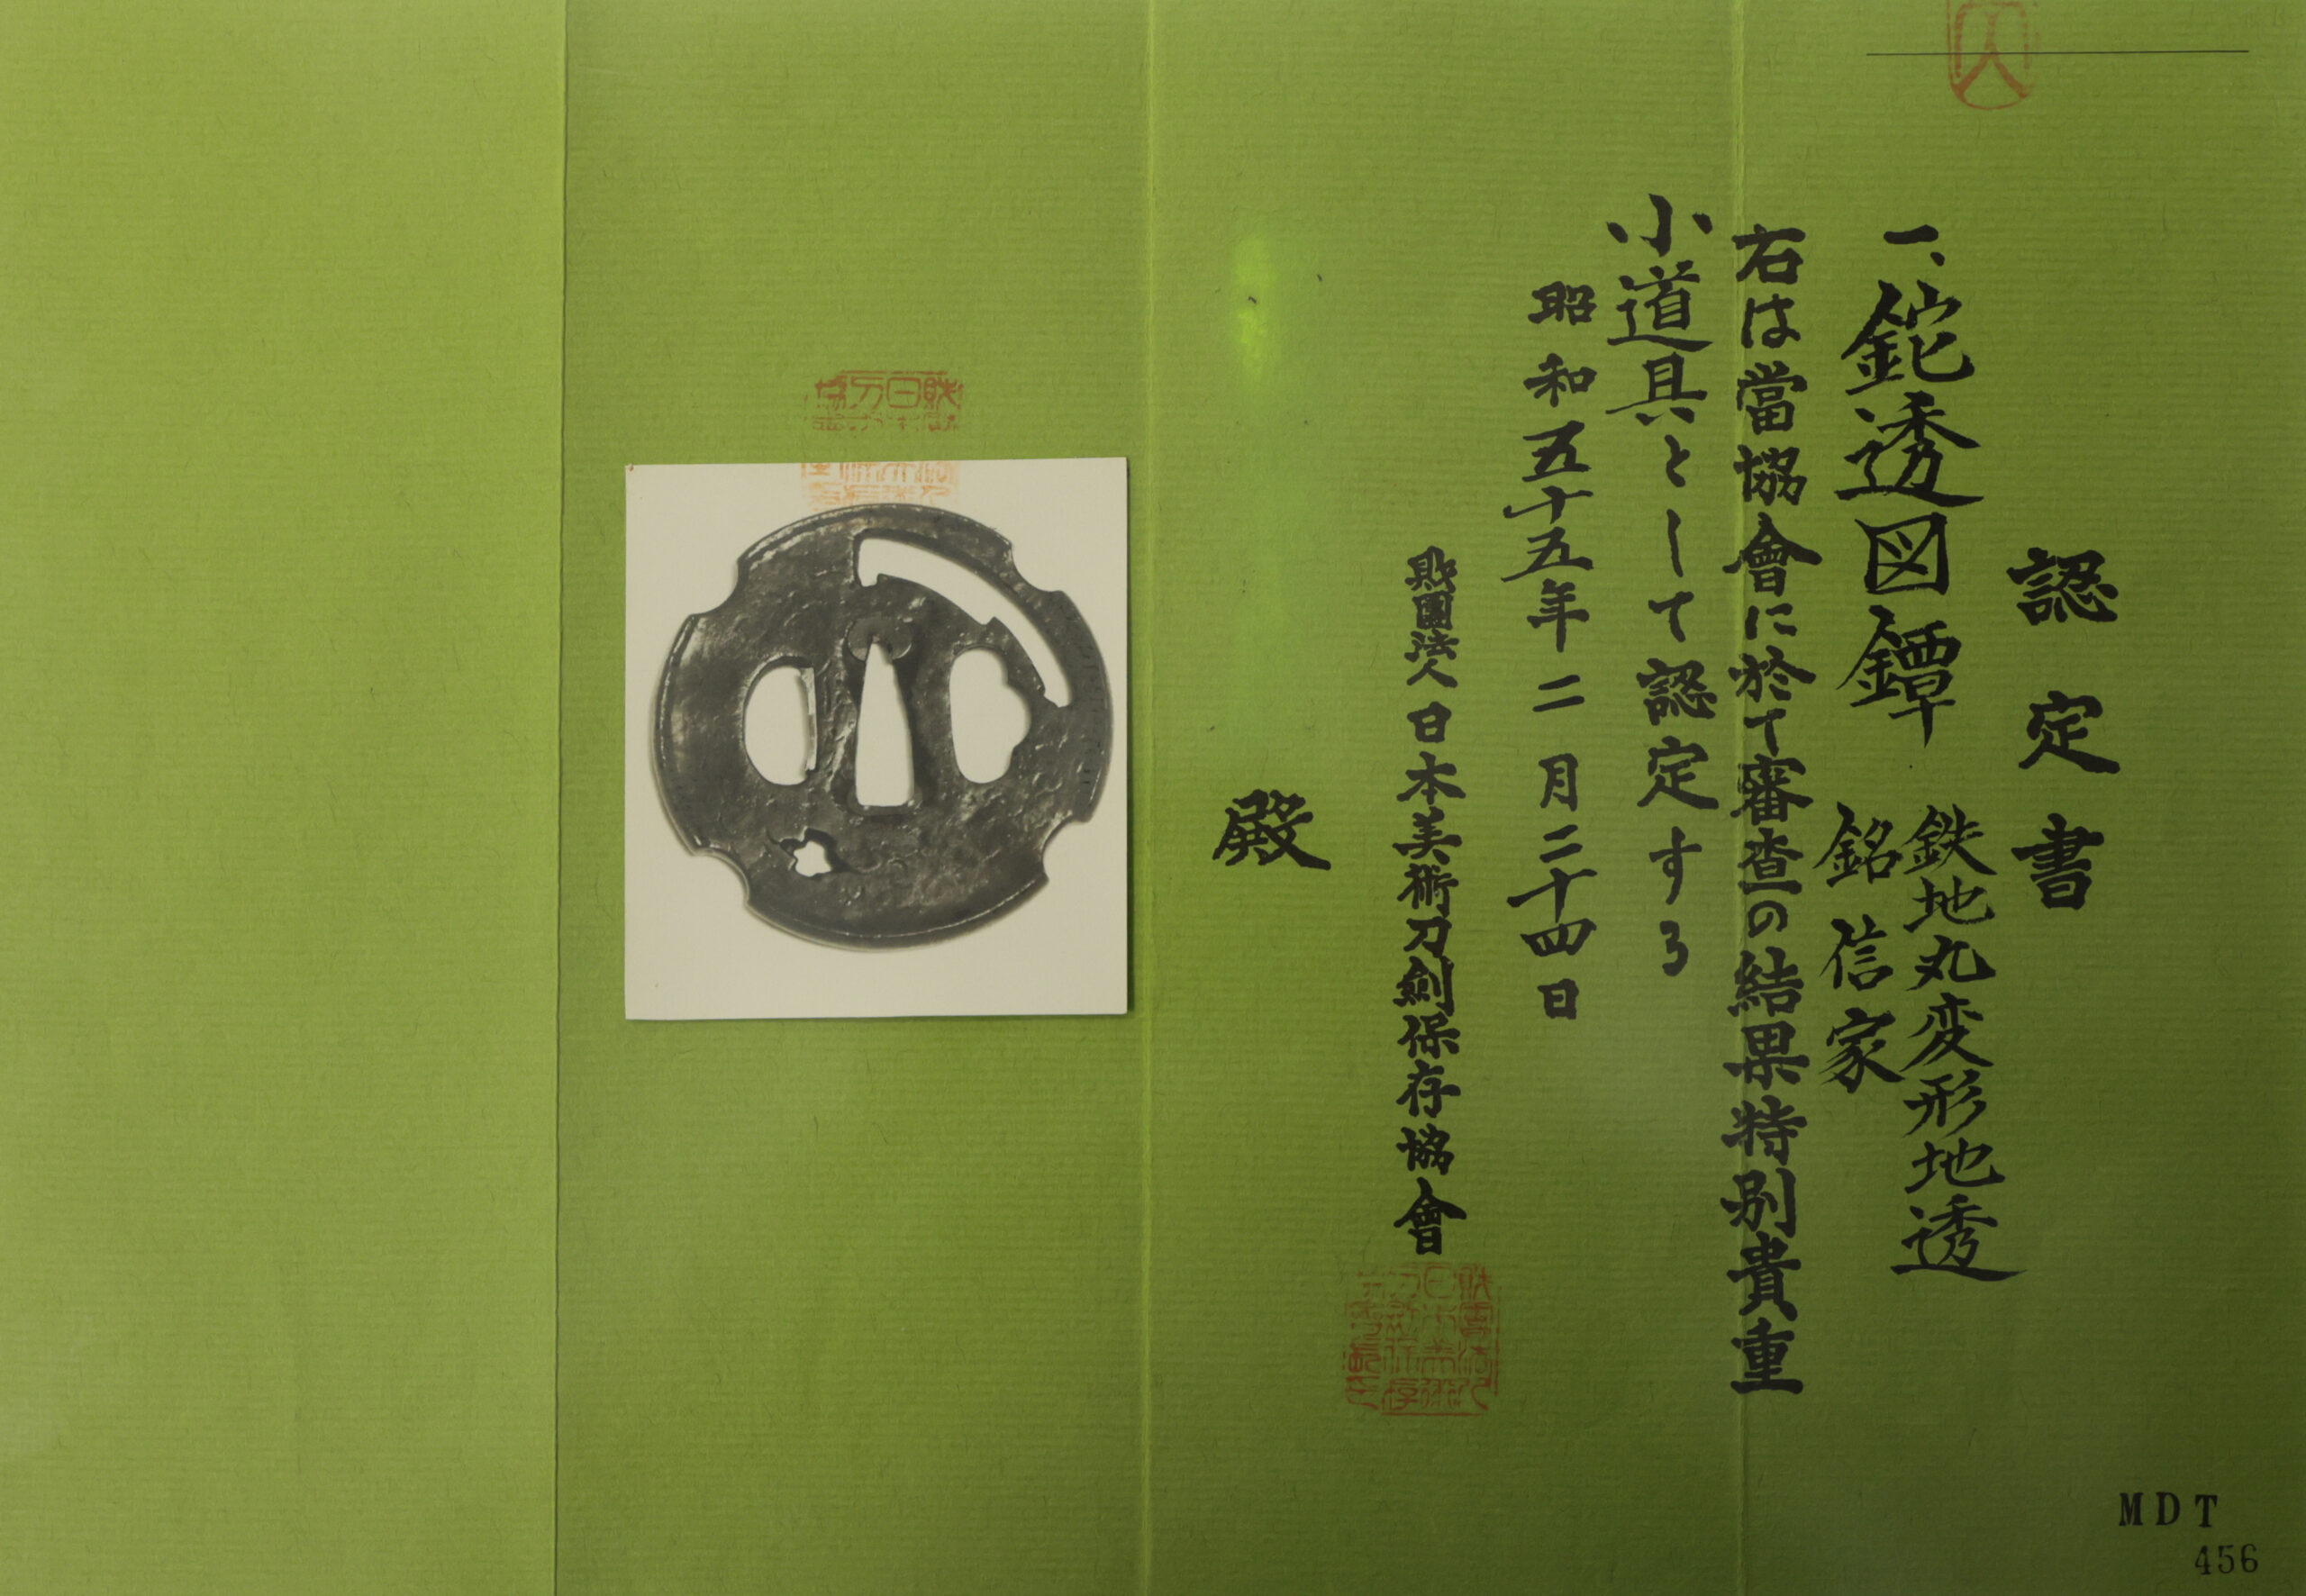 認定書
一、鉈透図鐔
鉄地丸変形地透
銘 信家
右は當協會に於て審査の結果特別貴重
小道具として認定する
昭和五十五年二月二十四日
財團法人 日本美術刀劍保存協會
殿
MDT
456